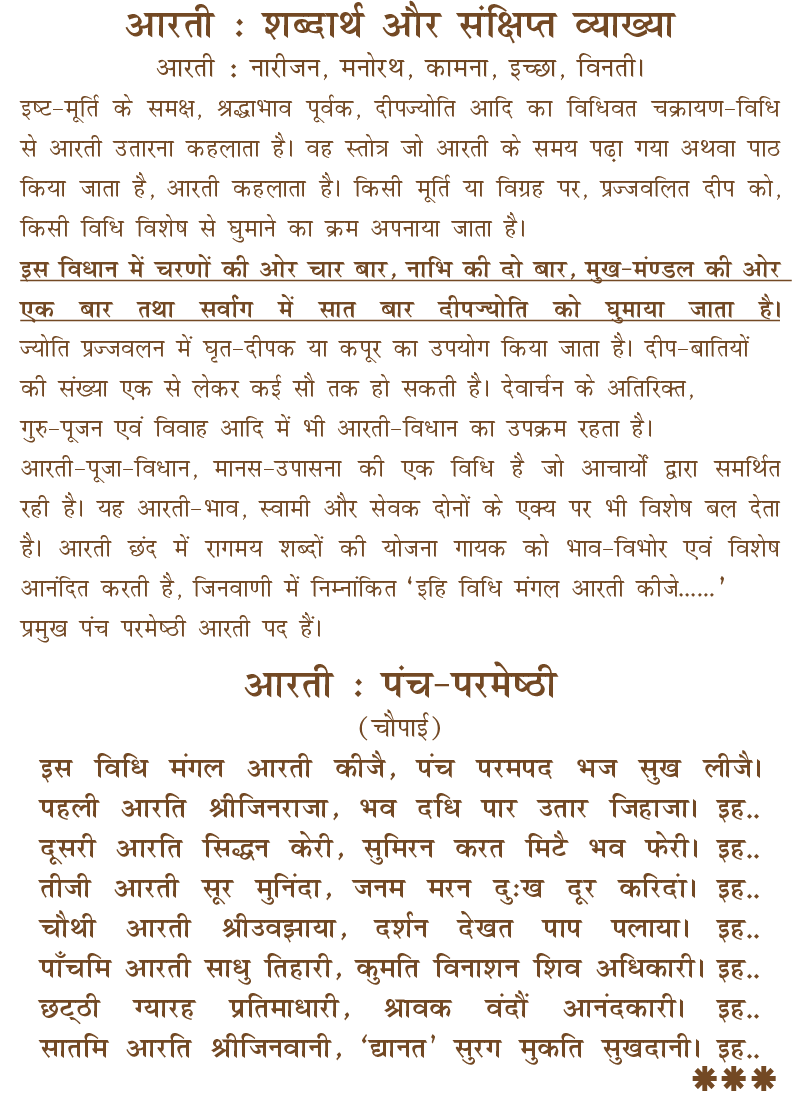 आरती : शब्दार्थ और संक्षिप्त व्याख्या
आरती : नारीजन, मनोरथ, कामना, इच्छा, विनती।
इष्ट-मूर्ति के समक्ष, श्रद्धाभाव पूर्वक, दीपज्योति आदि का विधिवत चक्रायण-विधि
से आरती उतारना कहलाता है। वह स्तोत्र जो आरती के समय पढ़ा गया अथवा पाठ
किया जाता है, आरती कहलाता है। किसी मूर्ति या विग्रह पर, प्रज्जवलित दीप को,
किसी विधि विशेष से घुमाने का क्रम अपनाया जाता है।
इस विधान में चरणों की ओर चार बार, नाभि की दो बार, मुख-मंण्डल की ओर
एक बार तथा सर्वांग में सात बार दीपज्योति को घुमाया जाता है।
ज्योति प्रज्जवलन में घृत-दीपक या कपूर का उपयोग किया जाता है। दीप-बातियों
की संख्या एक से लेकर कई सौ तक हो सकती है। देवार्चन के अतिरिक्त,
गुरु-पूजन एवं विवाह आदि में भी आरती-विधान का उपक्रम रहता है।
आरती-पूजा-विधान, मानस-उपासना की एक विधि है जो आचार्यों द्वारा समर्थित
रही है। यह आरती-भाव, स्वामी और सेवक दोनों के एक्य पर भी विशेष बल देता
है। आरती छंद में रागमय शब्दों की योजना गायक को भाव-विभोर एवं विशेष
आनंदित करती है, जिनवाणी में निम्नांकित ‘इहि विधि मंगल आरती कीजे......’
प्रमुख पंच परमेष्ठी आरती पद हैं।
आरती : पंच-परमेष्ठी
(चौपाई)
इस विधि मंगल आरती कीजै, पंच परमपद भज सुख लीजै।
पहली आरति श्रीजिनराजा, भव दधि पार उतार जिहाजा। इह..
दूसरी आरति सिद्धन केरी, सुमिरन करत मिटै भव फेरी। इह..
तीजी आरती सूर मुनिंदा, जनम मरन दुःख दूर करिदां। इह..
चौथी आरती श्रीउवझाया, दर्शन देखत पाप पलाया। इह..
पाँचमि आरती साधु तिहारी, कुमति विनाशन शिव अधिकारी। इह..
छट्ठी ग्यारह प्रतिमाधारी, श्रावक वंदौं आनंदकारी। इह..
सातमि आरति श्रीजिनवानी, ‘द्यानत’ सुरग मुकति सुखदानी। इह..